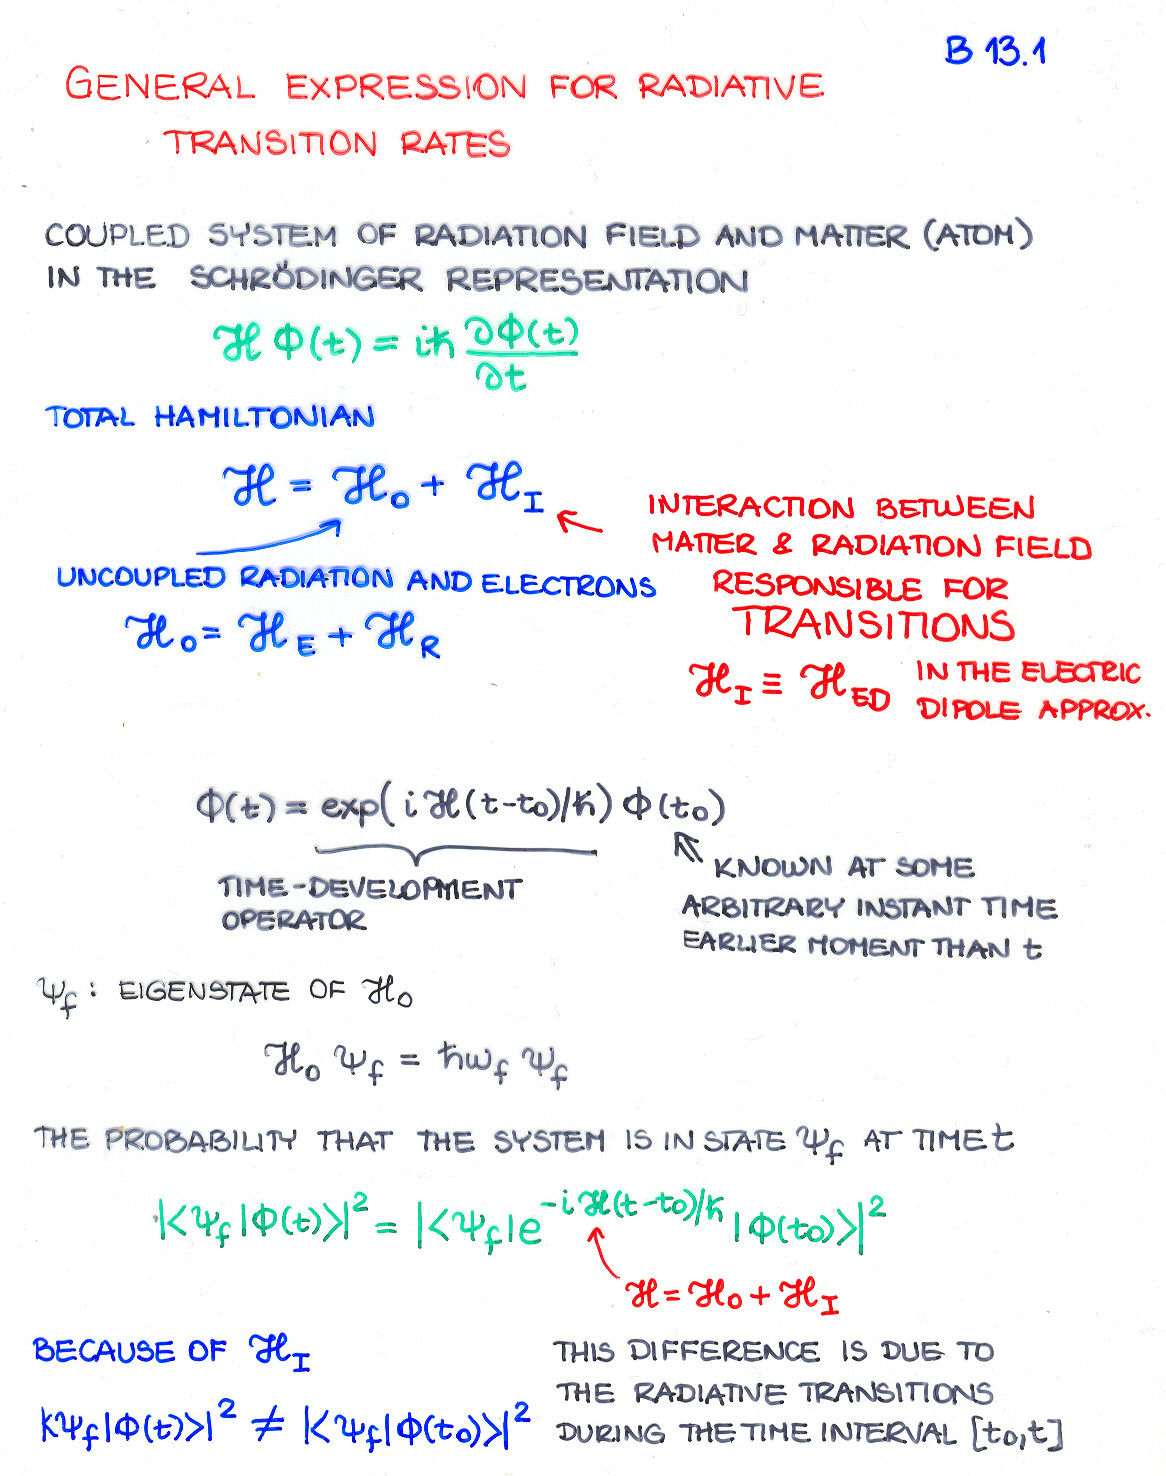 B 13.1
GENERAL EXPRESSION FOR RADIATIVE
TRANSITION RATES
COUPLED SYSTEM OF RADIATION FIELD AND MATTER (ATOM)
IN THE SCHRÖDINGER REPRESENTATION
ℋ Φ(t) = iℏ ∂Φ(t)/∂t
TOTAL HAMILTONIAN
ℋ = ℋ₀ + ℋ_I
INTERACTION BETWEEN
MATTER & RADIATION FIELD
RESPONSIBLE FOR
TRANSITIONS
ℋ_I ≡ ℋ_ED IN THE ELECTRIC
DIPOLE APPROX.
UNCOUPLED RADIATION AND ELECTRONS
ℋ₀ = ℋ_E + ℋ_R
Φ(t) = exp(iℋ(t-t₀)/ℏ) Φ(t₀)
TIME-DEVELOPMENT
OPERATOR
KNOWN AT SOME
ARBITRARY INSTANT TIME
EARLIER MOMENT THAN t
Ψ_f : EIGENSTATE OF ℋ₀
ℋ₀ Ψ_f = ℏω_f Ψ_f
THE PROBABILITY THAT THE SYSTEM IS IN STATE Ψ_f AT TIME t
|<Ψ_f|Φ(t)>|² = |<Ψ_f|e^{-iℋ(t-t₀)/ℏ}|Φ(t₀)>|²
ℋ = ℋ₀ + ℋ_I
BECAUSE OF ℋ_I
|<Ψ_f|Φ(t)>|² ≠ |<Ψ_f|Φ(t₀)>|²
THIS DIFFERENCE IS DUE TO
THE RADIATIVE TRANSITIONS
DURING THE TIME INTERVAL [t₀,t]